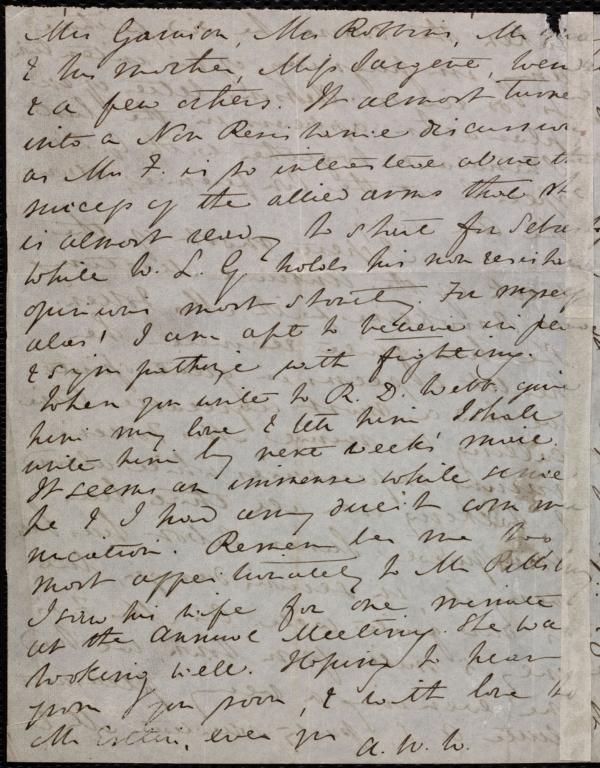 Mrs Garrison, Mrs Robbins, Mr
& his mother, Miss Sargent, were
& a few others. It almost turned
into a Non Resistance discussion
as Mrs F. is so interested about the
success of the allied arms that she
is almost ready to start for Sebas
while W. L. G. holds his non resistance
opinions most stoutly. For myself
alas! I am apt to believe in peace
& sympathize with fighting.
When you write to R. D. Webb give
him my love & tell him I shall
write him by next week's mail.
It seems an immense while since
he & I had any direct commu
nication. Remember me too
most affectionately to Mr Pillsbury
I saw his wife for one minute
at the Annual Meeting. She was
looking well. Hoping to hear
from you soon, & with love to
Mr Estlin, ever yrs A. W. W.